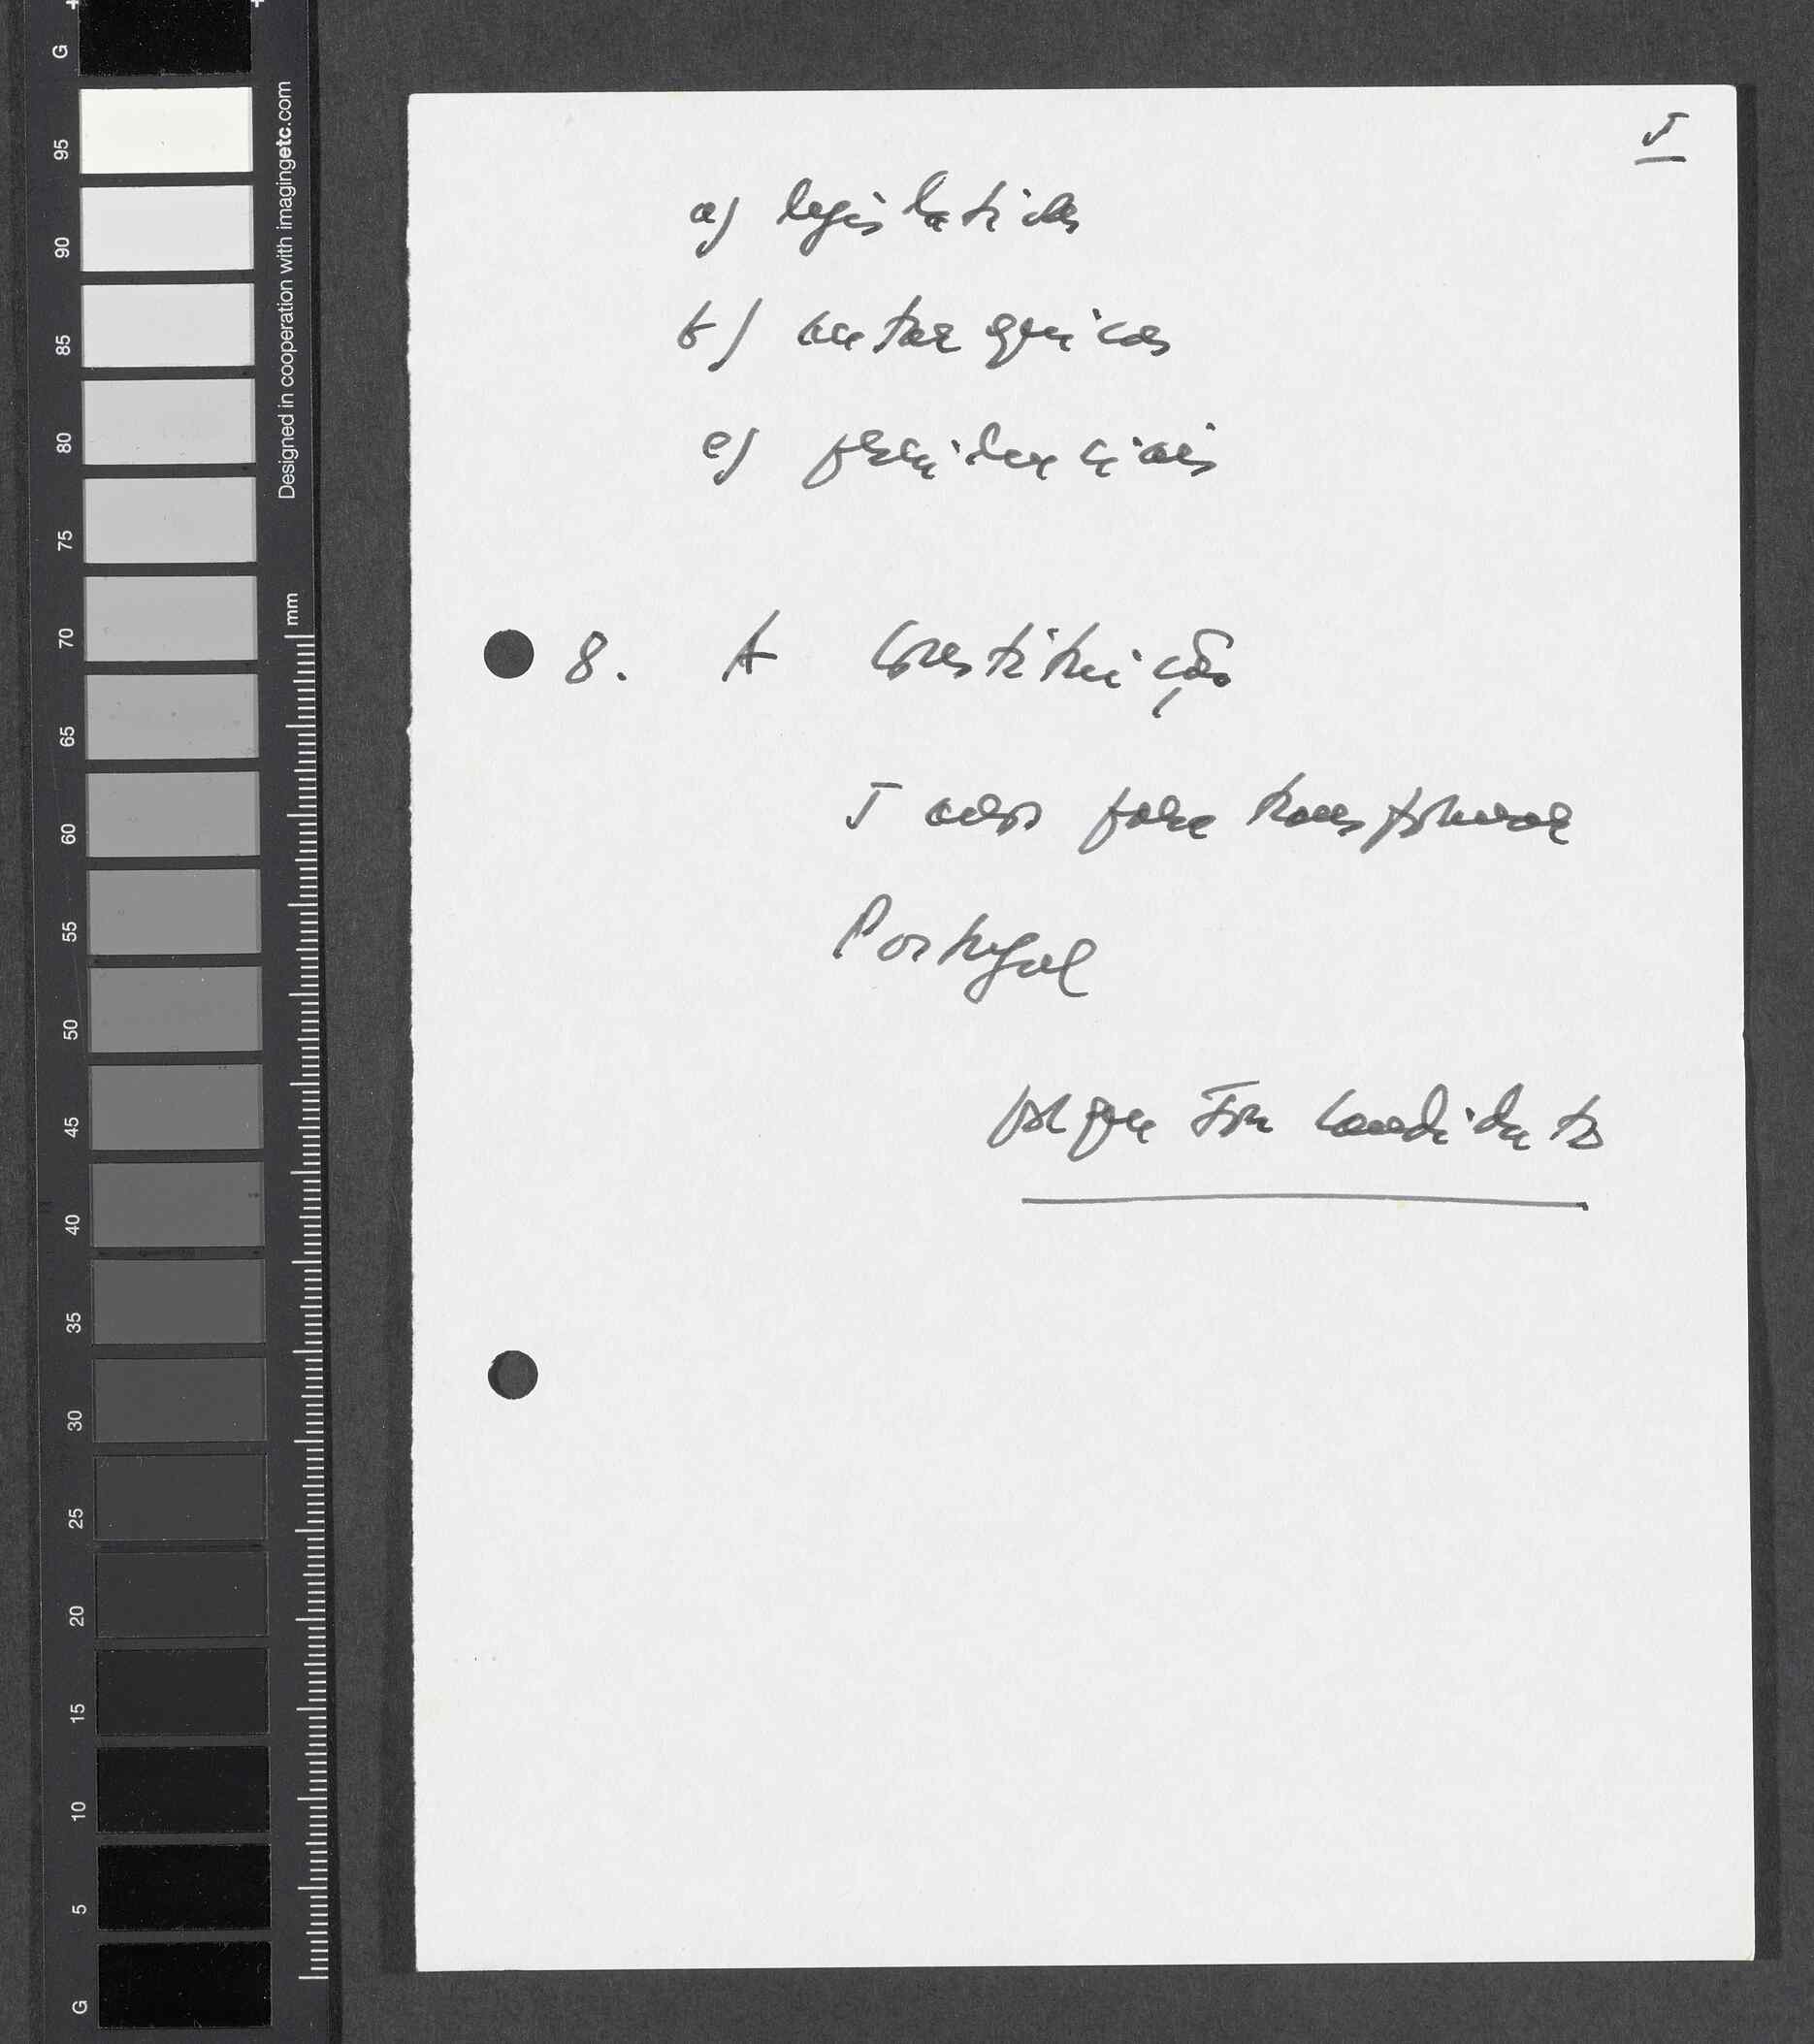 5
a) legislativas
b) autárquicas
c) presidenciais
8. A Constituição
5 anos para transformar
Portugal
porque fui candidato
Designed in cooperation with imagingetc.com
mm
G
95
90
85
80
75
70
65
60
55
50
45
40
35
30
25
20
15
10
5
G